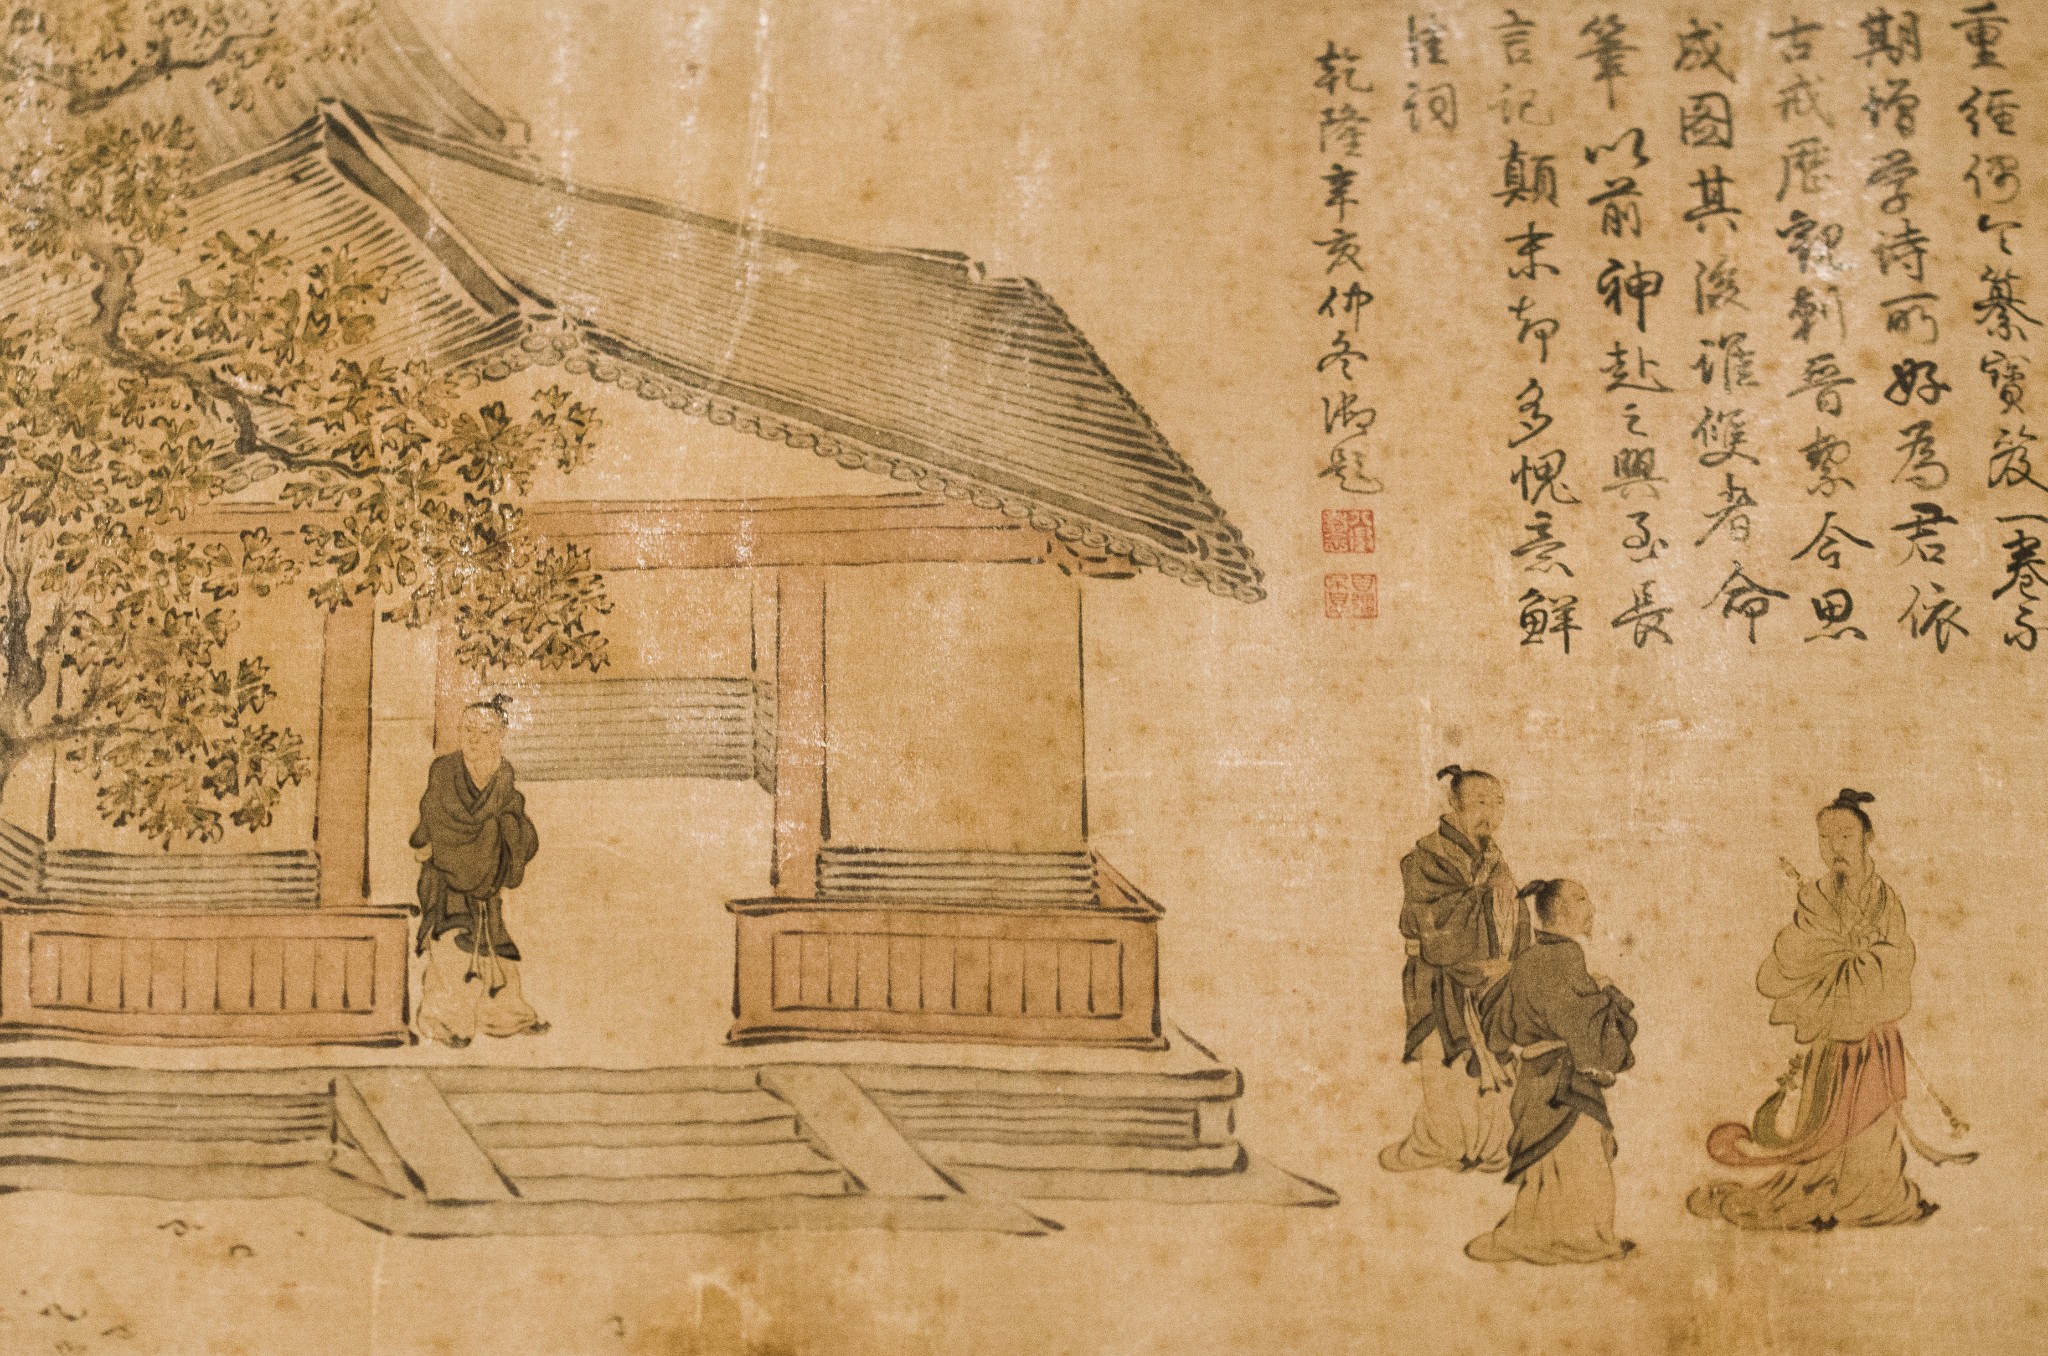 重經仍令纂寶笈一卷不
期增學詩所好為君依
古戒歷觀刺晉繫令思
成圖其後誰候者命
筆以前神赴之興函長
言記顛末却多愧意鮮
隹詞
乾隆辛亥仲冬御題